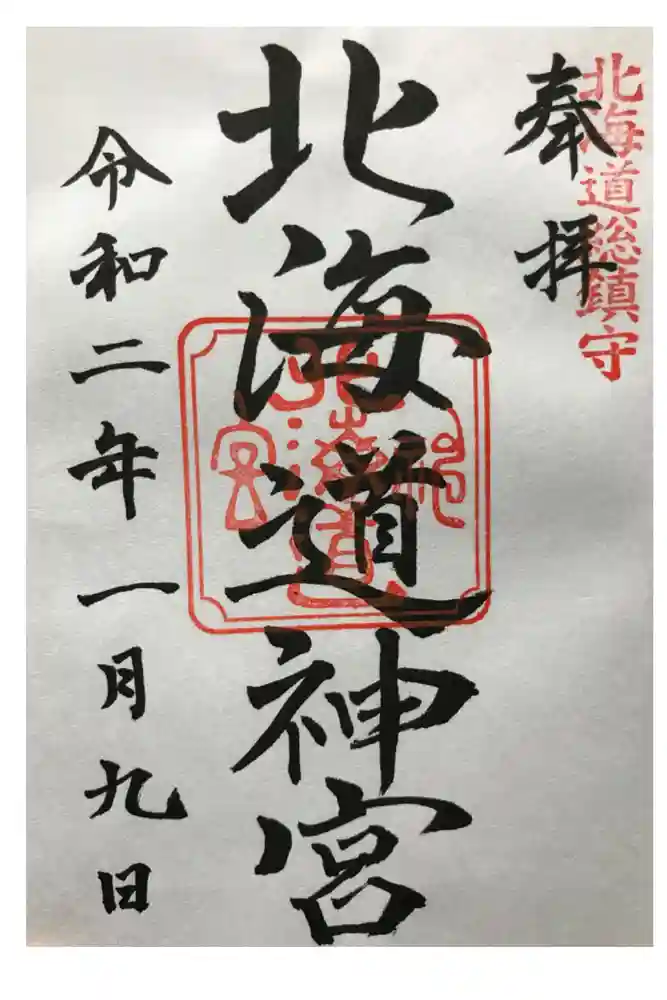 北海道総鎮守
奉拝
北海道神宮
北海道神宮
令和二年一月九日